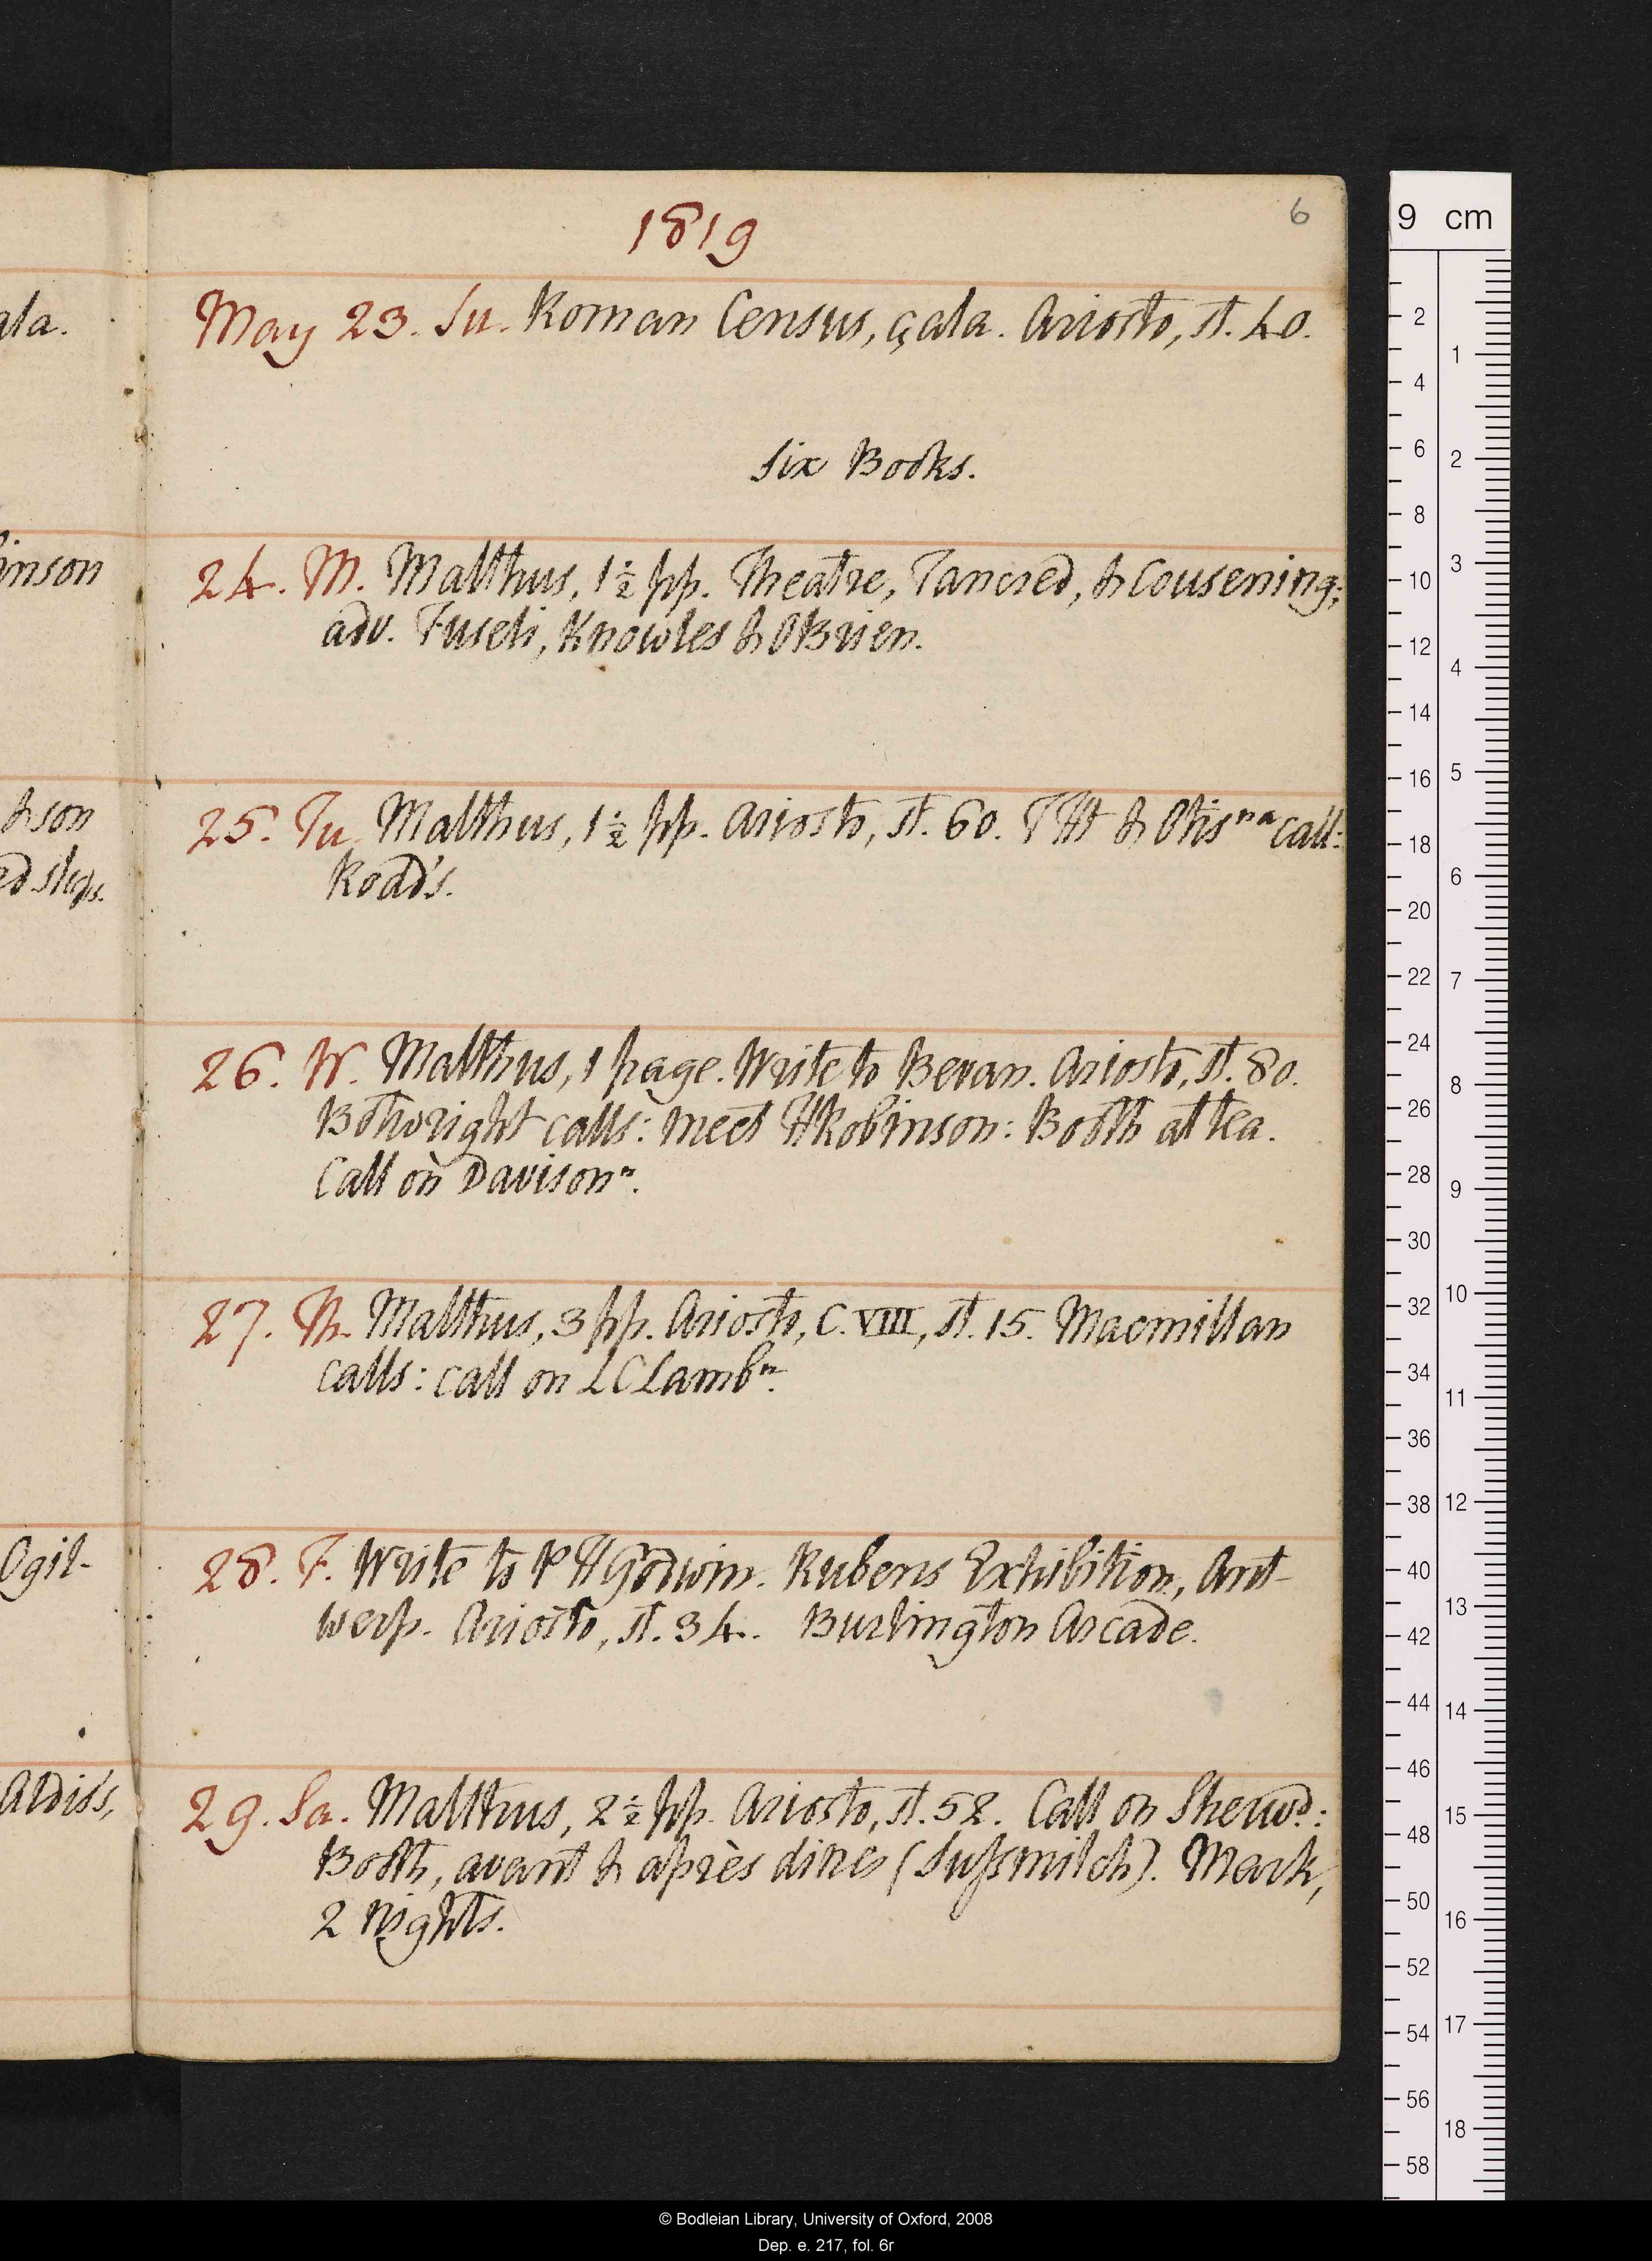 1819
6
ala.
May 23. Su. Roman Census, çala. Ariosto, st. 40.
Six Books.
inson
24. M. Malthus, 1½ pp. Theatre, Tancred, & Cousening;
adv. Fuseli, Knowles & OBrien.
& son
25. Tu. Malthus, 1½ pp. Ariosto, st. 60. TH & Otis na call:
Road's.
26. W. Malthus, 1 page. Write to Bevan. Ariosto, st. 80.
Bothwright calls: meet HRobinson: Booth at tea.
Call on Davison n.
27. Th. Malthus, 3 pp. Ariosto, C. VIII, st. 15. Macmillan
calls: call on LCLamb n.
Ogil-
28. F. Write to P HGodwin. Rubens Exhibition, Ant-
werp. Ariosto, st. 34. Burlington Arcade.
Aldis's,
29. Sa. Malthus, 2½ pp. Ariosto, st. 52. Call on Sherwd:
Booth, avant & après diner (Sussmilch). Mark,
2 nights.
9 cm
2
4
6
8
10
12
14
16
18
20
22
24
26
28
30
32
34
36
38
40
42
44
46
48
50
52
54
56
58
1
2
3
4
5
6
7
8
9
10
11
12
13
14
15
16
17
18
© Bodleian Library, University of Oxford, 2008
Dep. e. 217, fol. 6r